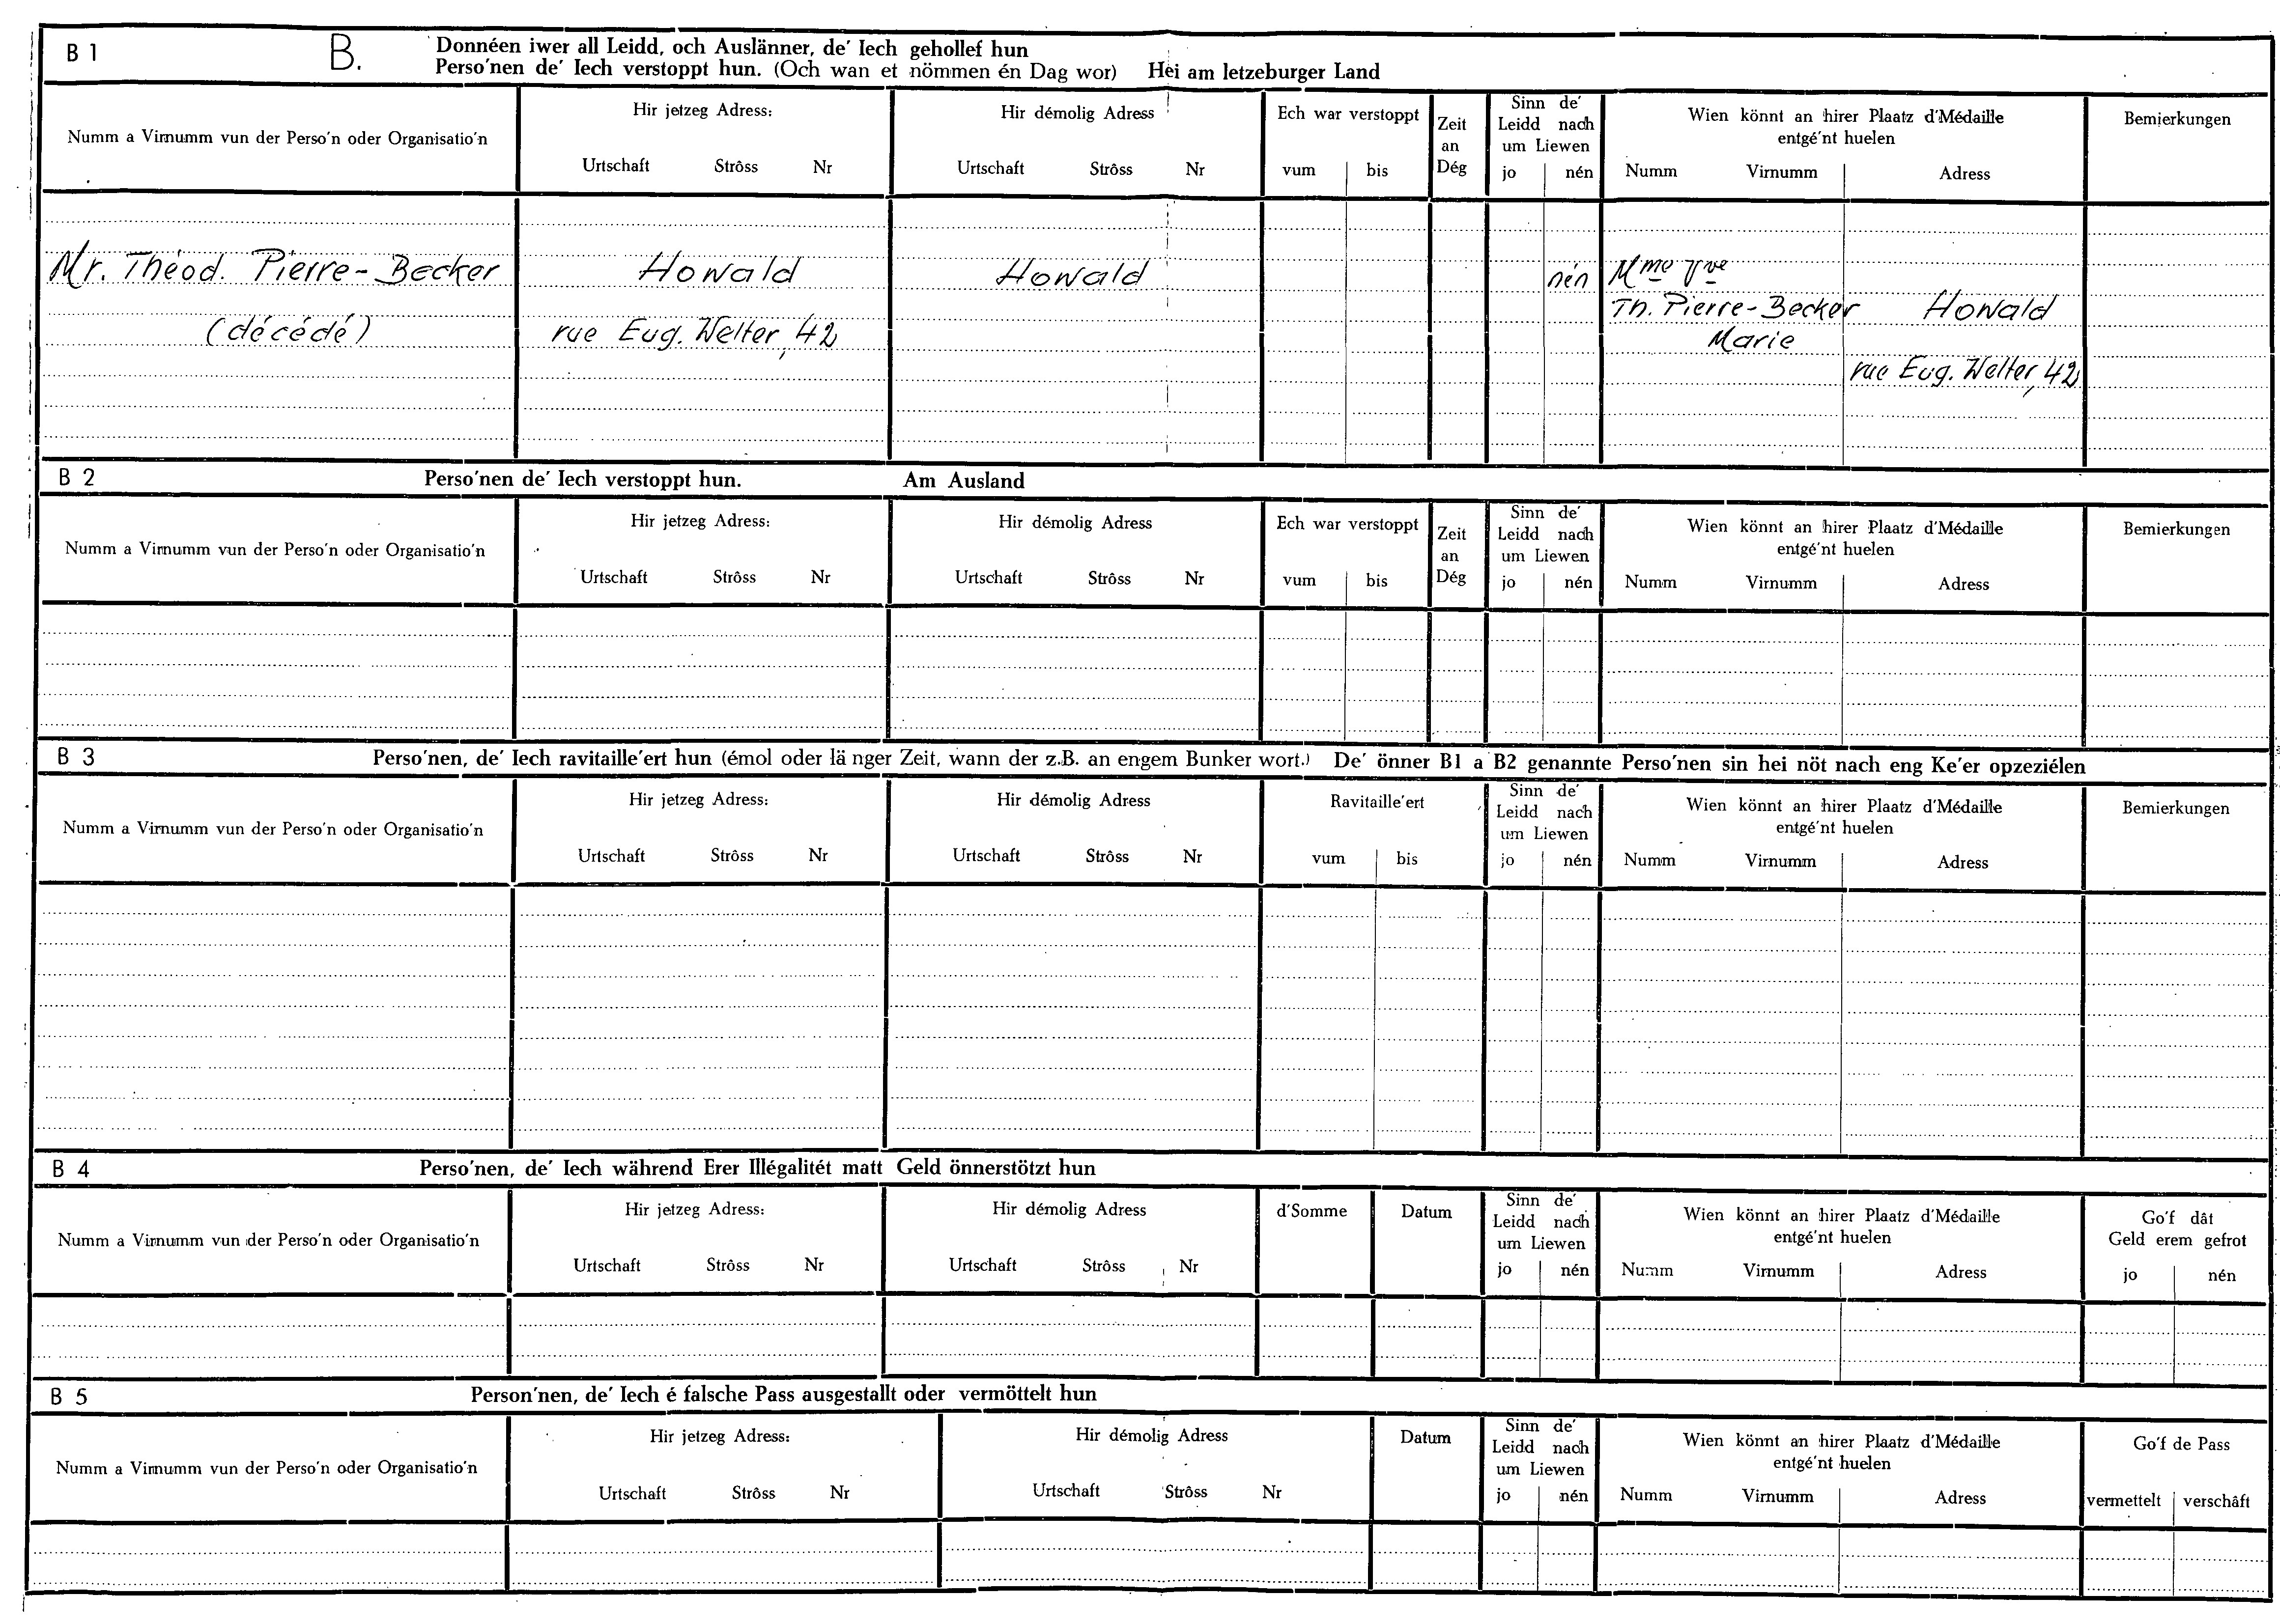 B 1
B.
Donnéen iwer all Leidd, och Auslänner, de' Iech gehollef hun
Perso'nen de' Iech verstoppt hun. (Och wan et nömmen én Dag wor) Hei am letzeburger Land
Numm a Virnumm vun der Perso'n oder Organisatio'n
Hir jetzeg Adress:
Urtschaft Strôss Nr
Hir démolig Adress
Urtschaft Strôss Nr
Ech war verstoppt
vum bis
Zeit
an
Dég
Sinn de'
Leidd nach
um Liewen
jo nén
Wien könnt an hirer Plaatz d'Médaille
entgé'nt huelen
Numm Virnumm Adress
Bemierkungen
Mr. Théod. Pierre-Becker Howald Howald nén Mme Vve
Th. Pierre-Becker Howald
(décédé) rue Eug. Welter, 42 Marie
rue Eug. Welter, 42
B 2
Perso'nen de' Iech verstoppt hun. Am Ausland
Numm a Virnumm vun der Perso'n oder Organisatio'n
Hir jetzeg Adress:
Urtschaft Strôss Nr
Hir démolig Adress
Urtschaft Strôss Nr
Ech war verstoppt
vum bis
Zeit
an
Dég
Sinn de'
Leidd nach
um Liewen
jo nén
Wien könnt an hirer Plaatz d'Médaille
entgé'nt huelen
Numm Virnumm Adress
Bemierkungen
B 3
Perso'nen, de' Iech ravitaille'ert hun (émol oder lä nger Zeit, wann der z.B. an engem Bunker wort.) De' önner B1 a B2 genannte Perso'nen sin hei nöt nach eng Ke'er opzeziélen
Numm a Virnumm vun der Perso'n oder Organisatio'n
Hir jetzeg Adress:
Urtschaft Strôss Nr
Hir démolig Adress
Urtschaft Strôss Nr
Ravitaille'ert
vum bis
Sinn de'
Leidd nach
um Liewen
jo nén
Wien könnt an hirer Plaatz d'Médaille
entgé'nt huelen
Numm Virnumm Adress
Bemierkungen
B 4
Perso'nen, de' Iech während Erer Illégalitét matt Geld önnerstötzt hun
Numm a Virnumm vun der Perso'n oder Organisatio'n
Hir jetzeg Adress:
Urtschaft Strôss Nr
Hir démolig Adress
Urtschaft Strôss Nr
d'Somme
Datum
Sinn de'
Leidd nach
um Liewen
jo nén
Wien könnt an hirer Plaatz d'Médaille
entgé'nt huelen
Numm Virnumm Adress
Go'f dât
Geld erem gefrot
jo nén
B 5
Person'nen, de' Iech é falsche Pass ausgestallt oder vermöttelt hun
Numm a Virnumm vun der Perso'n oder Organisatio'n
Hir jetzeg Adress:
Urtschaft Strôss Nr
Hir démolig Adress
Urtschaft Strôss Nr
Datum
Sinn de'
Leidd nach
um Liewen
jo nén
Wien könnt an hirer Plaatz d'Médaille
entgé'nt huelen
Numm Virnumm Adress
Go'f de Pass
vermettelt verschâft